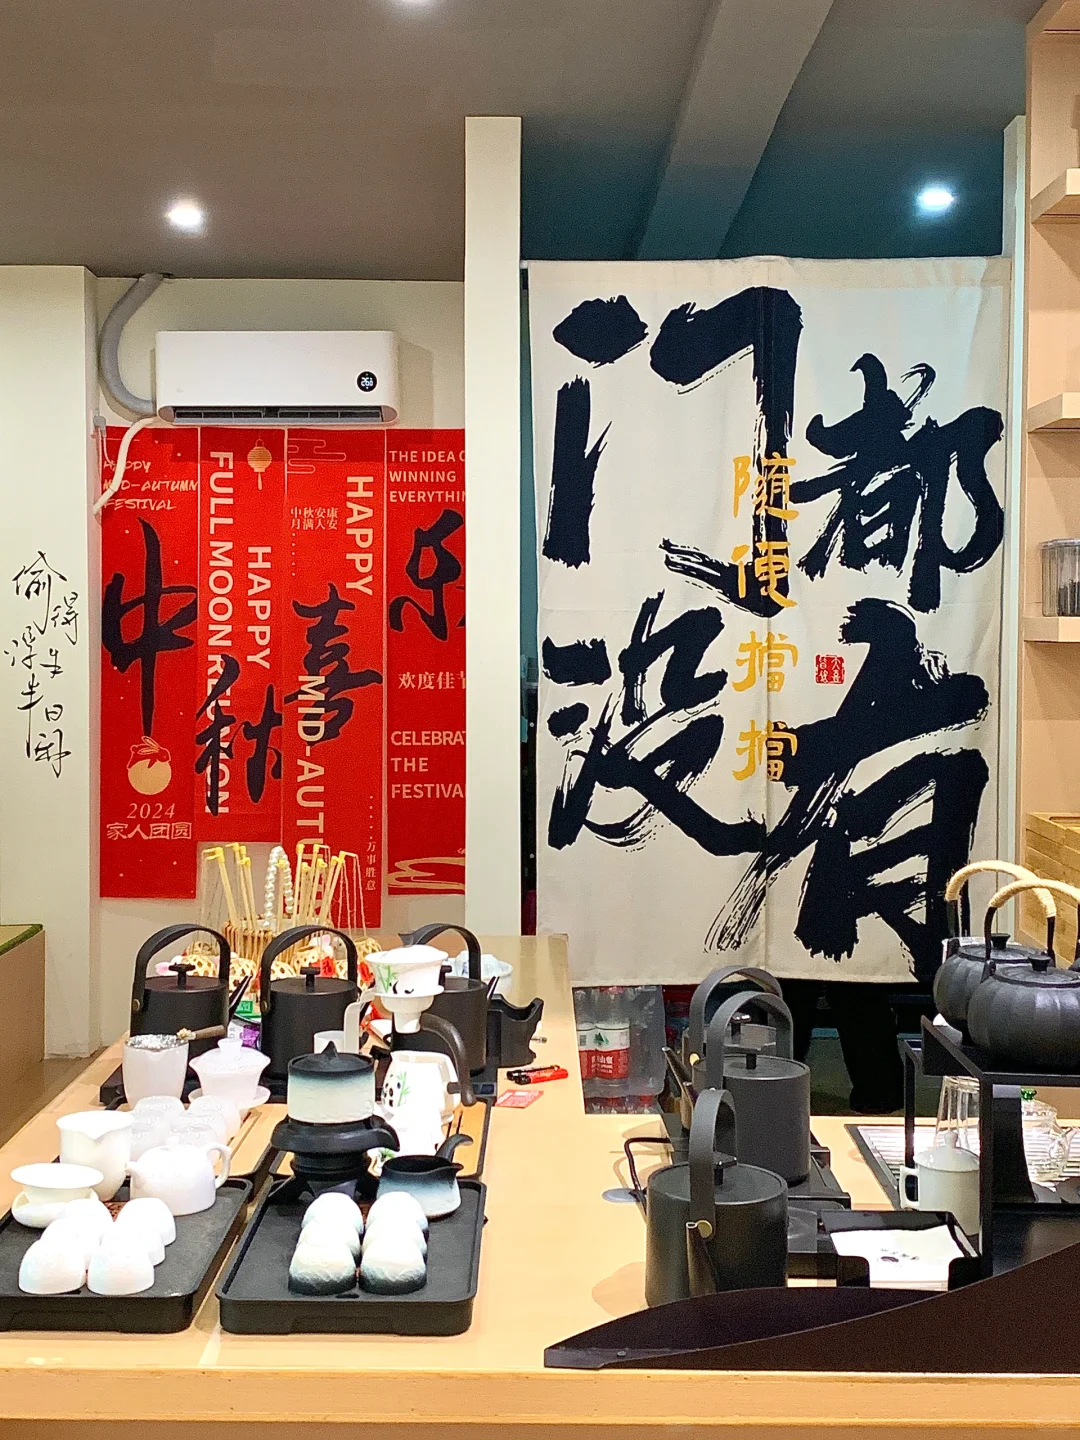 偷得
浮生
半日闲
26
HAPPY
MID-AUTUMN
FESTIVAL
中
2024
家人团圆
FULL MOON REUNION
HAPPY
秋
中秋安康
月满人安
HAPPY
喜
MID-AUTU
万事胜意
THE IDEA O
WINNING
EVERYTHIN
乐
欢度佳节
CELEBRAT
THE
FESTIVA
门都
没有
随便挡挡